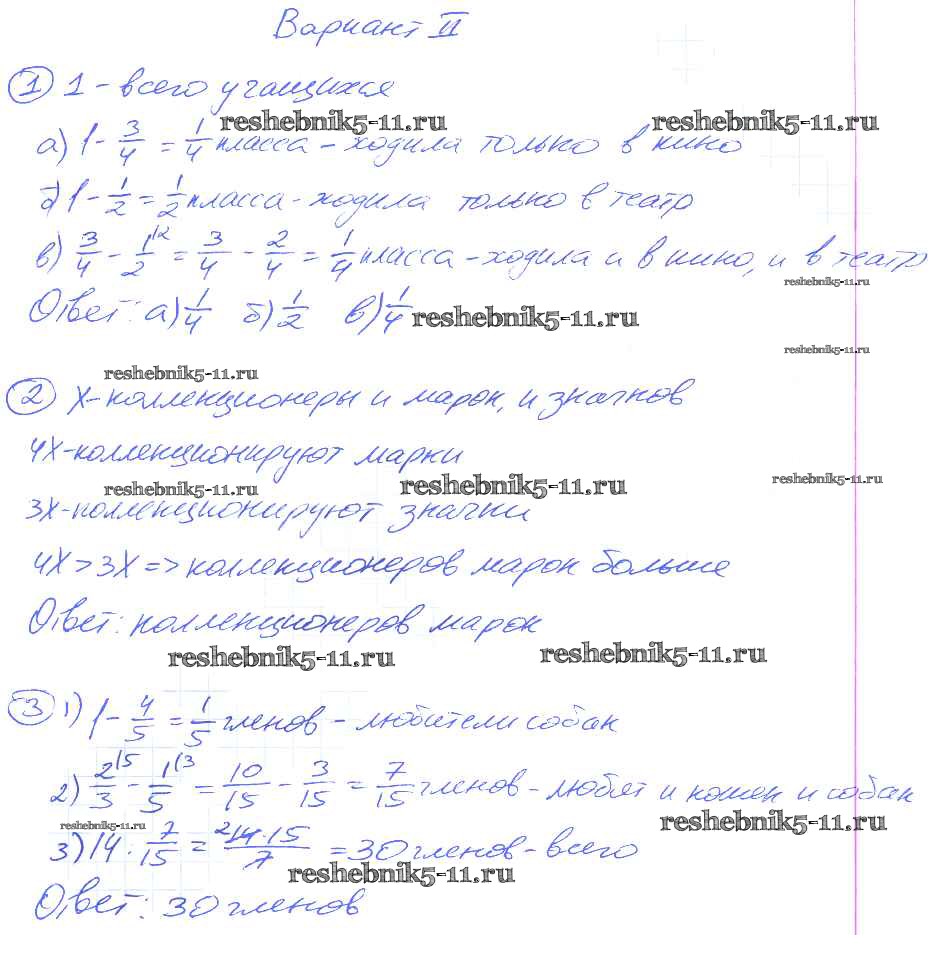 Вариант II
1 1 - всего учащихся
reshebnik5-11.ru reshebnik5-11.ru
а) 1 - 3/4 = 1/4 класса - ходила только в кино
б) 1 - 1/2 = 1/2 класса - ходила только в театр
в) 3/4 - 1/2 (2 = 3/4 - 2/4 = 1/4 класса - ходила и в кино, и в театр
reshebnik5-11.ru
Ответ: а) 1/4 б) 1/2 в) 1/4
reshebnik5-11.ru
reshebnik5-11.ru
reshebnik5-11.ru
2 х - коллекционеры и марок, и значков
4х - коллекционируют марки
reshebnik5-11.ru reshebnik5-11.ru reshebnik5-11.ru
3х - коллекционируют значки
4х > 3х => коллекционеров марок больше
Ответ: коллекционеров марок
reshebnik5-11.ru reshebnik5-11.ru
3 1) 1 - 4/5 = 1/5 членов - любители собак
2) 2/3 (5 - 1/5 (3 = 10/15 - 3/15 = 7/15 членов - любят и кошек и собак
reshebnik5-11.ru reshebnik5-11.ru
3) 14 · 7/15 = 2 14·15/7 = 30 членов - всего
reshebnik5-11.ru
Ответ: 30 членов